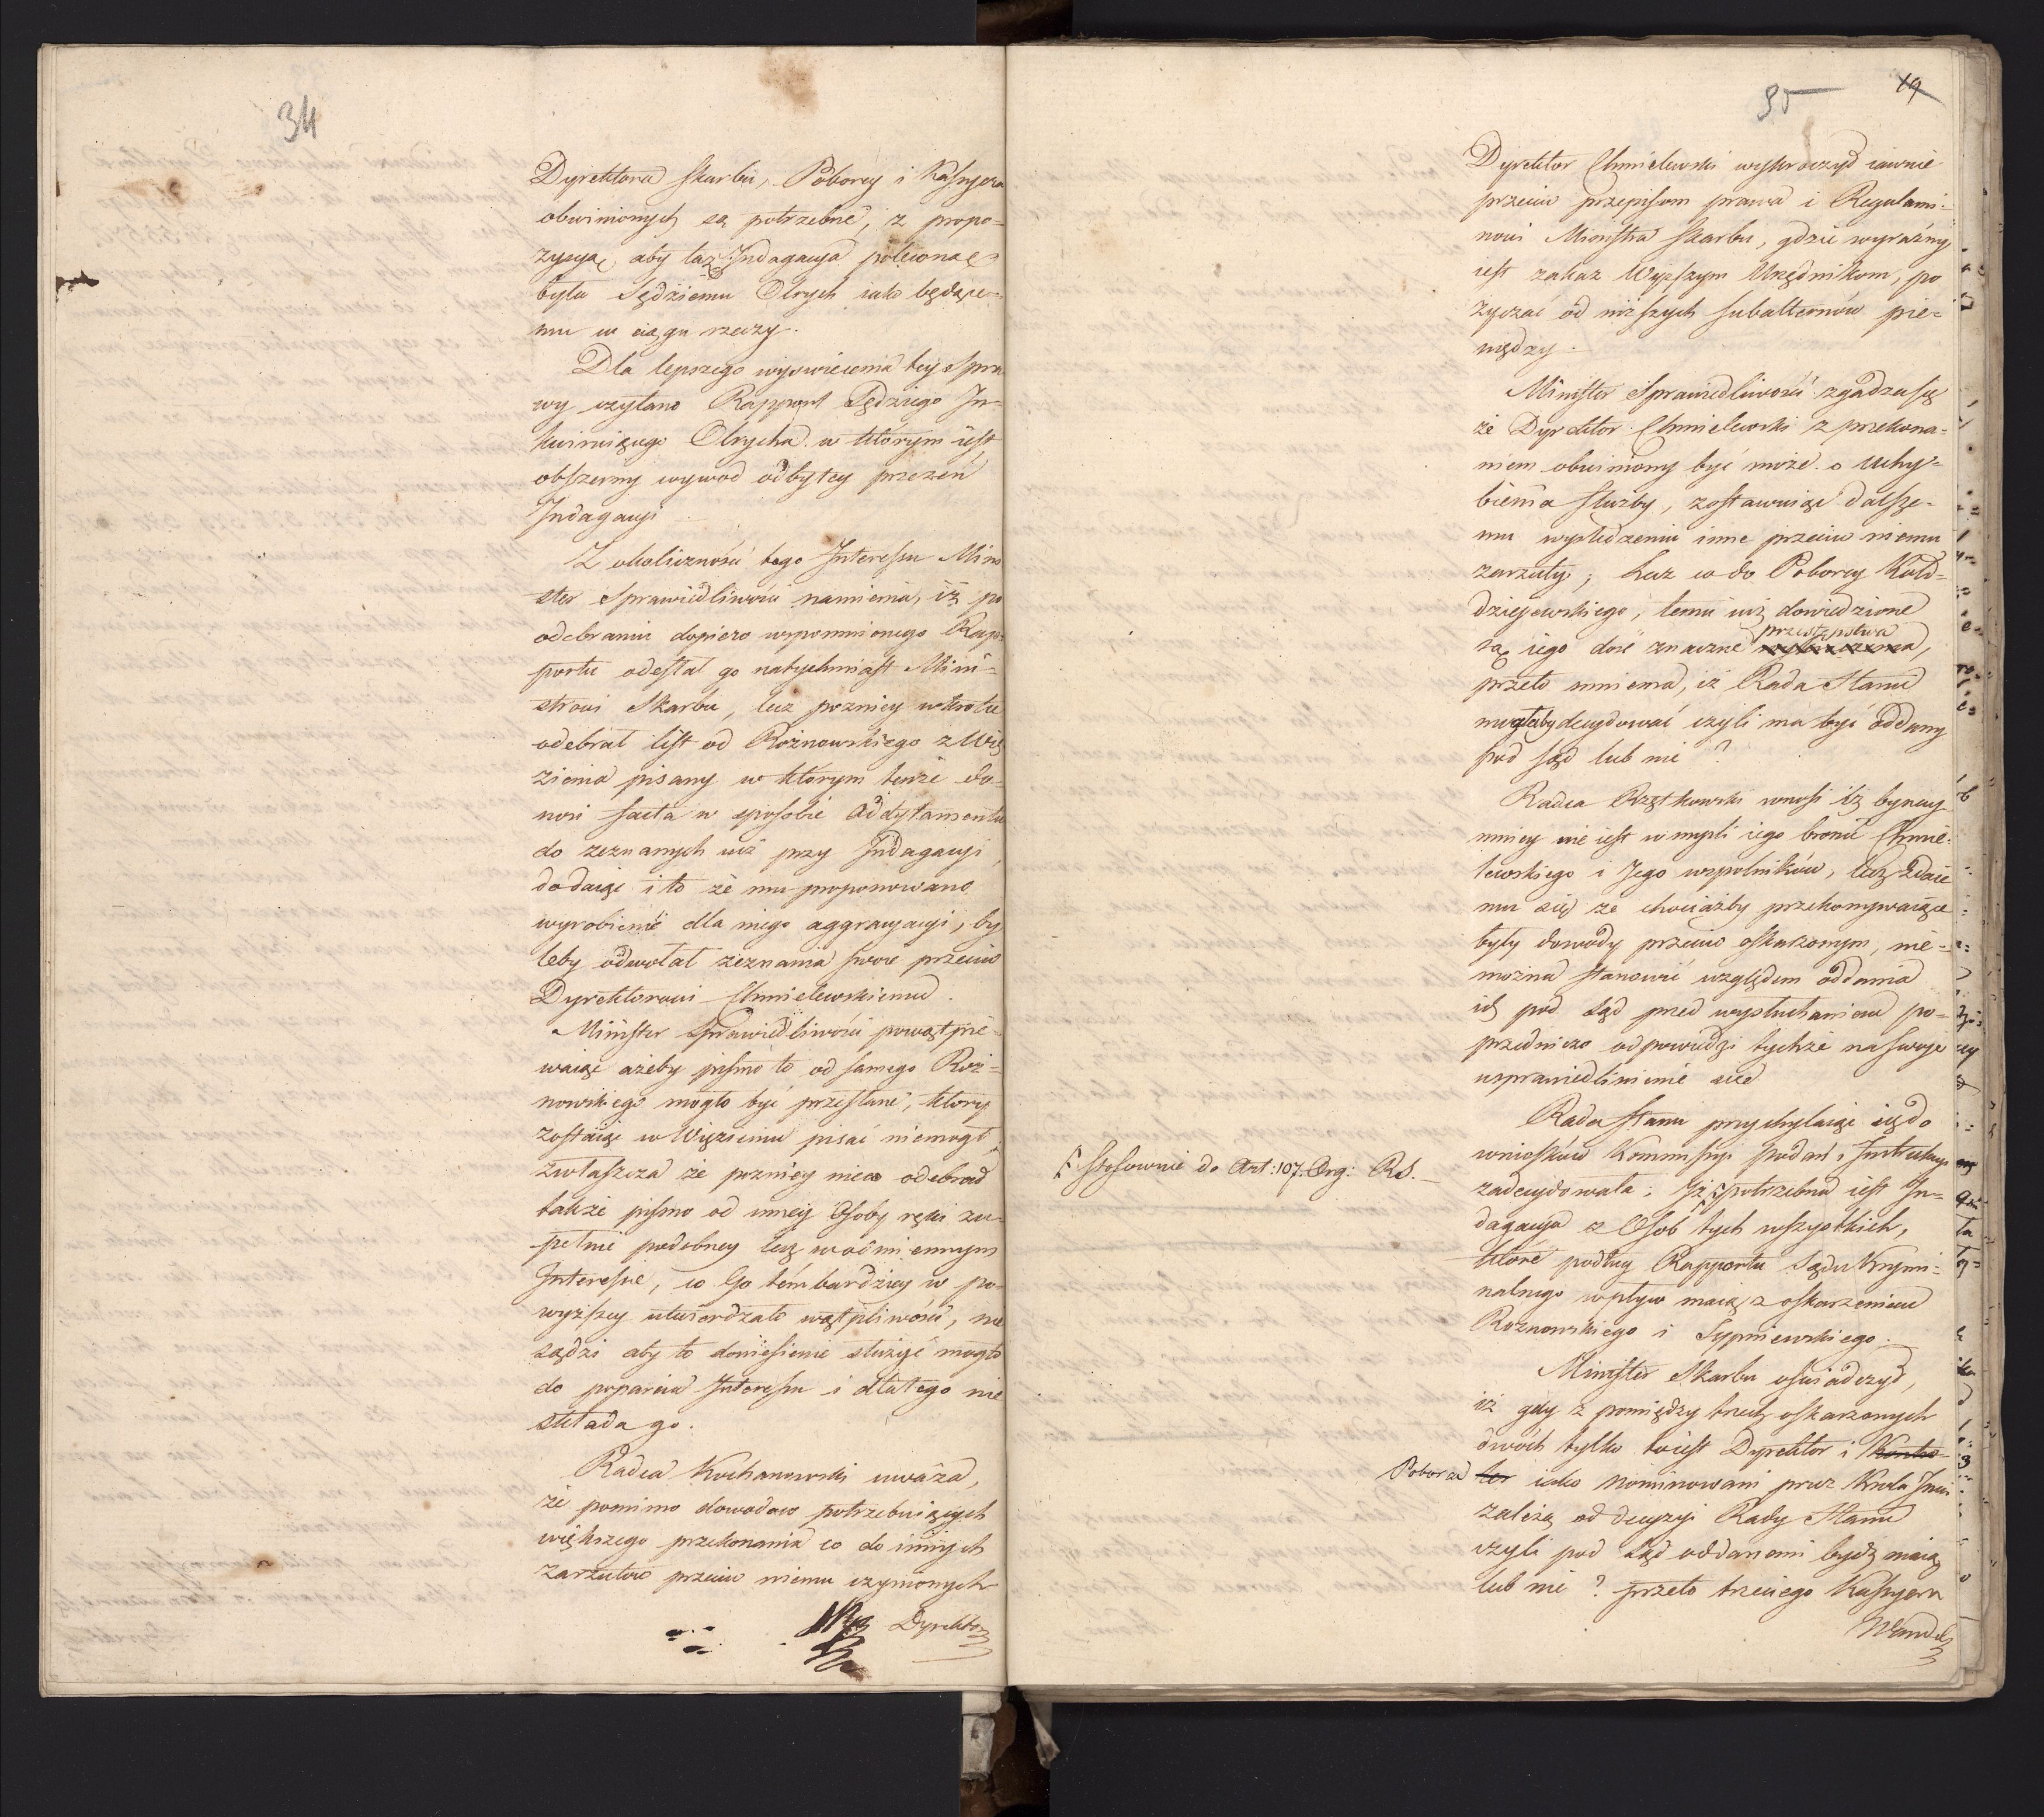 34
Dyrektora Skarbu, Poborcy i Kassyera
obwinionych są potrzebne, z propo-
zycyą, aby taż Indagacya poleconą
była Sędziemu Olrych iako będące-
mu w ciągu rzeczy.
Dla lepszego wyswiecenia tey spra
wy czytano Rapport Sędziego In-
kwiruiącego Olrycha w którym iest
obszerny wywod odbytey przezeń
Indagacyi
Z okoliczności tego Interessu Mini
ster Sprawiedliwości namienia, iż po
odebraniu dopiero wspomnionego Rap-
portu odesłał go natychmiast Mini-
strowi Skarbu, lecz pozniey wkrotce
odebrał list od Rożnowskiego z Wię
zienia pisany w którym tenże do-
nosi facta w sposobie Addytamentu
do zeznanych iuż przy Indagacyi,
dodaiąc i to że mu proponowano
wyrobienie dla niego aggracyacyi, by
leby odwołał zeznania swoie przeciw
Dyrektorowi Chmielewskiemu.
Minister Sprawiedliwości powątpie-
waiąc ażeby pismo to od samego Roż-
nowskiego mogło być przesłane, ktory
zostaiąc w Więzieniu pisać niemogł,
zwłaszcza że pozniey nieco odebrał
także pismo od inney Osoby ręki zu-
pełnie podobney lecz w odmiennym
Interesie, co Go tém bardziey w po-
wyższey utwierdzało wątpliwości, nie
sądzi aby to doniesienie służyć mogło
do poparcia Interessu i dlatego nie
składa go.
Radca Kochanowski uważa,
że pomimo dowodow potrzebuiących
większego przekonania co do innych
zarzutow przeciw niemu czynionych
Dyrektor
35
19
Dyrektor Chmielewski wykroczył iawnie
przeciw przepisom prawa i Regulami-
nowi Ministra Skarbu, gdzie wyraźny
iest zakaz Wyższym Urzędnikom, po
życzać od niższych subalternów pie-
niędzy.
Minister Sprawiedliwości zgadza się
że Dyrektor Chmielewski z przekona-
niem obwiniony być może o uchy-
bienia służby, zostawuiąc dalsze-
mu wyśledzeniu inne przeciw niemu
zarzuty; lecz co do Poborcy Koło-
dzieiewskiego, temu iuż dowiedzione
przestępstwa
są iego dość znaczne wykroczenia,
przeto mniema, iż Rada Stanu
mogłaby decydować czyli ma być oddany
pod sąd lub nie?
Radca Rzętkowski wnosi iż byney
mniey nie iest w myśli iego bronić Chmie-
lewskiego i Jego wspolników, lecz zdaie
mu się że chociażby przekonywaiące
były dowody przeciw oskarżonym, nie-
można stanowić względem oddania
ich pod Sąd przed wysłuchaniem po-
przedniczo odpowiedzi tychże na swoje
usprawiedliwienie się
Rada Stanu przychylaiąc się do
wniosków Kommissyi podań i Instrukcyi
zadecydowała; Iż potrzebna iest In-
stosownie do Art: 107. Org: R.S.
dagacya z Osob tych wszystkich,
które podług Rapportu Sądu Krymi-
nalnego wpływ maią z oskarżeniem
Roznowskiego i Sypniewskiego.
Minister Skarbu oświadczył,
iż gdy z pomiędzy trzech oskarżonych
dwóch tylko to iest Dyrektor i Kontro-
Poborca ler iako nominowani przez Krola Jmci
zależą od decyzyi Rady Stanu
czyli pod Sąd oddanemi bydź maią
lub nie? przeto trzeciego Kassyera